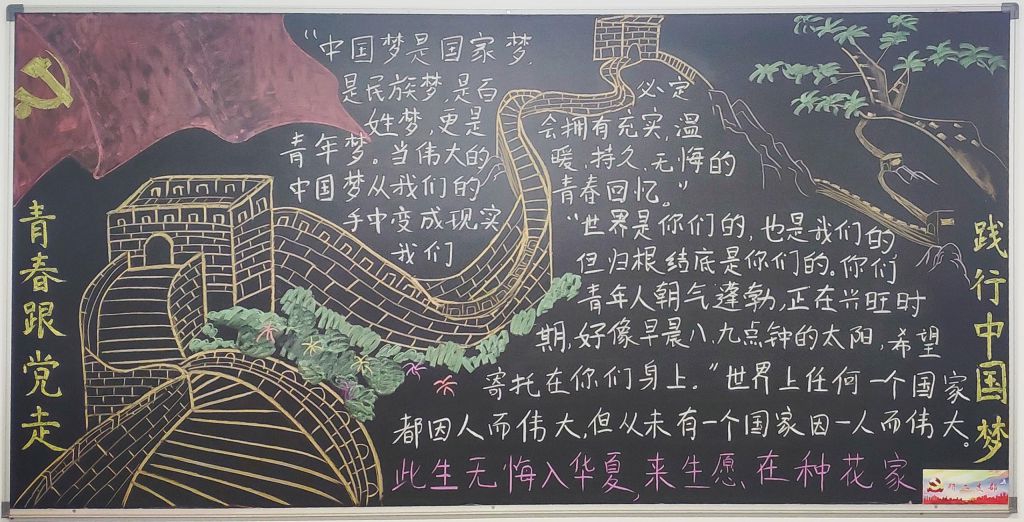 青春跟党走
"中国梦是国家梦,
是民族梦,是百
姓梦,更是
青年梦。当伟大的
中国梦从我们的
手中变成现实
我们
必定
会拥有充实,温
暖,持久,无悔的
青春回忆。"
"世界是你们的,也是我们的
但归根结底是你们的。你们
青年人朝气蓬勃,正在兴旺时
期,好像早晨八、九点钟的太阳,希望
寄托在你们身上。"世界上任何一个国家
都因人而伟大,但从未有一个国家因一人而伟大。
此生无悔入华夏,来生愿在种花家
践行中国梦